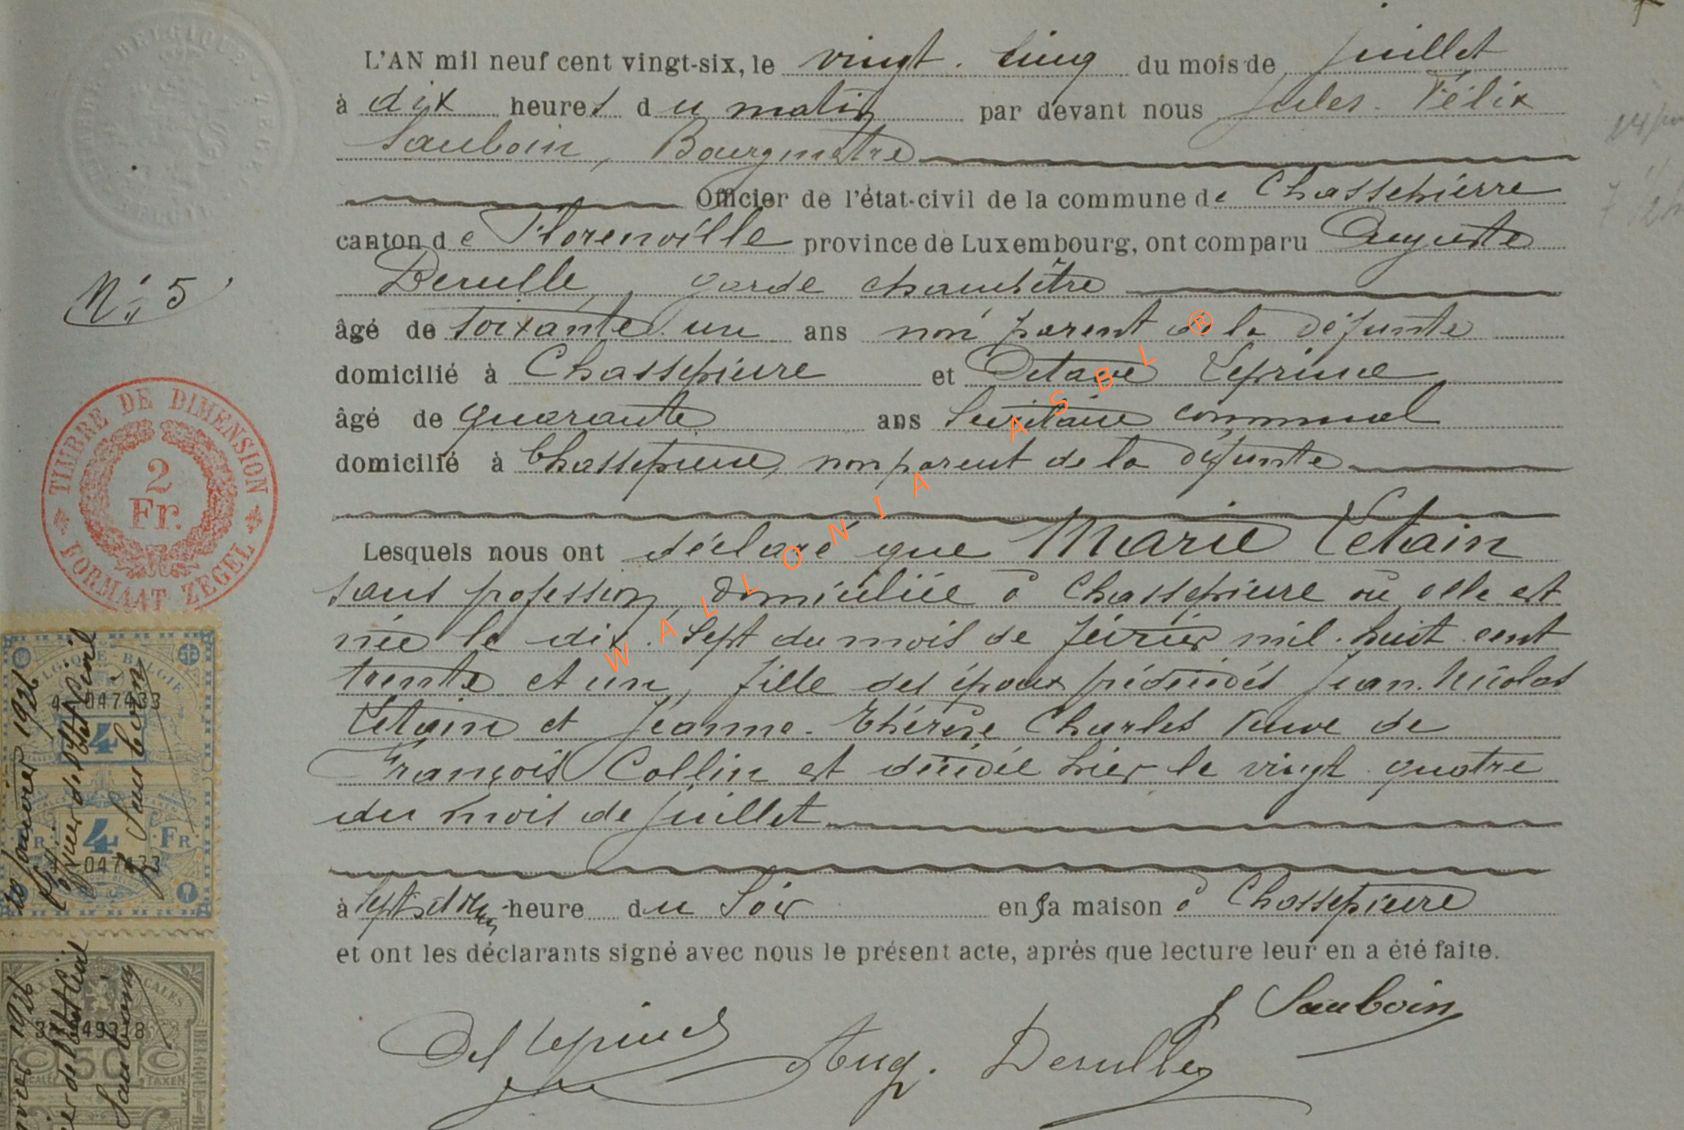 L'AN mil neuf cent vingt-six, le vingt-cinq du mois de juillet
à dix heures du matin par devant nous Jules-Félix
Sauboin, Bourgmestre
Officier de l'état-civil de la commune de Chassepierre
canton de Florenville province de Luxembourg, ont comparu Auguste
Derulle, garde champêtre
N° 5
âgé de soixante-un ans non parent de la défunte
domicilié à Chassepierre et Octave Leprince
âgé de quarante ans Secrétaire communal
domicilié à Chassepierre, non parent de la défunte
Lesquels nous ont déclaré que Marie Létain
sans profession, domiciliée à Chassepierre où elle est
née le dix-sept du mois de février mil-huit cent
trente et un, fille des époux prédécédés Jean-Nicolas
Létain et Jeanne-Thérèse Charles veuve de
François Collin est décédée hier le vingt-quatre
du mois de juillet
à sept et heure du soir en sa maison à Chassepierre
et ont les déclarants signé avec nous le présent acte, après que lecture leur en a été faite.
J Sauboin
Leprince Aug. Derulle
TIMBRE DE DIMENSION
2
Fr.
FORMAAT ZEGEL
BELGIQUE BELGIË
047433
4
4 FR
047433
20 janvier 1926
l'officier de l'état civil
J Sauboin
50
TAXEN
1926
Sauboin
WALLONIA ASBL ®